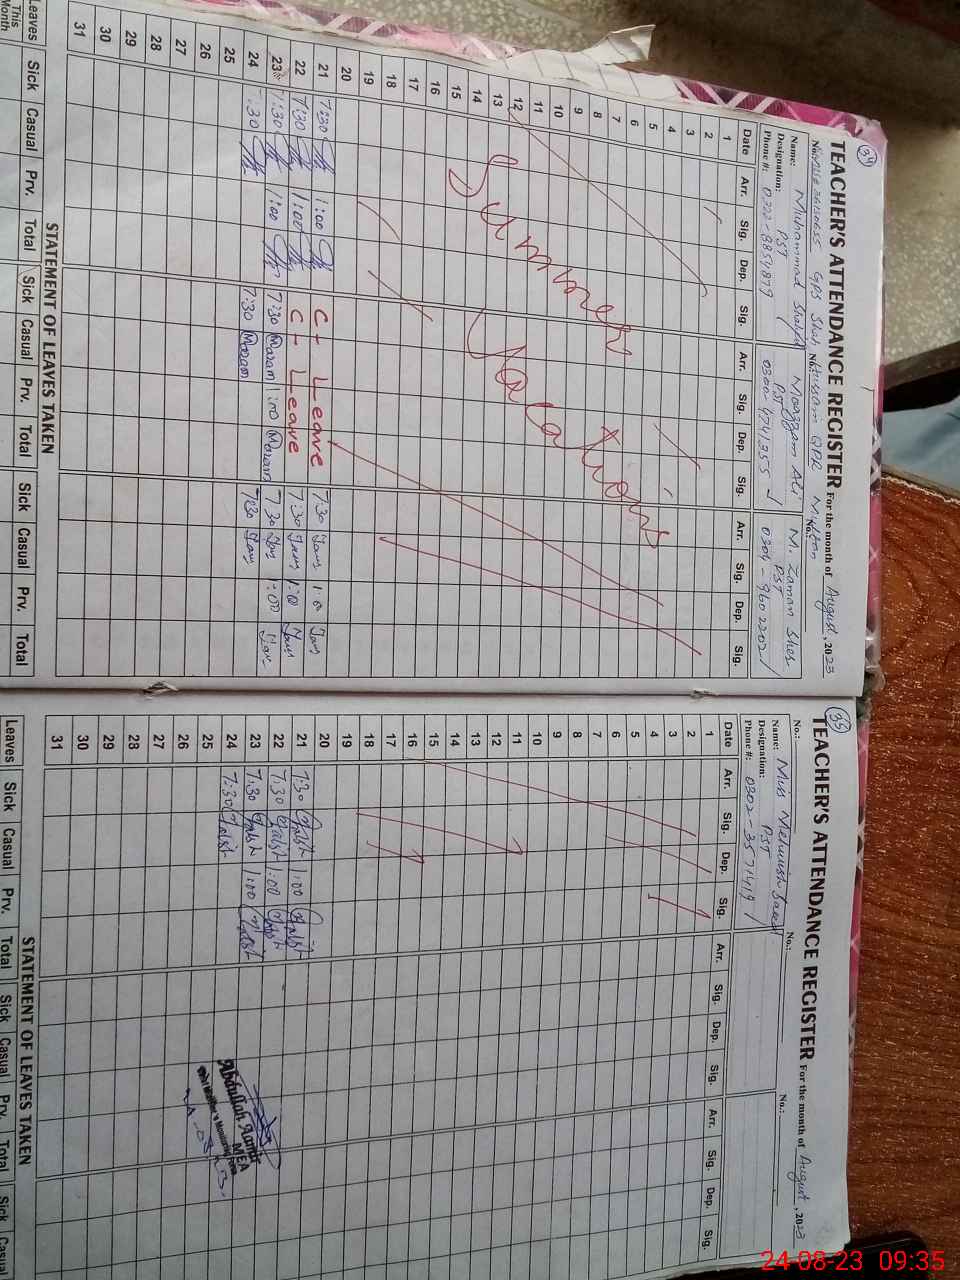 34
TEACHER'S ATTENDANCE REGISTER For the month of August, 2023
No.: GPS Shah Hussain QPR Multan
No.:
No.:
Name: Muhammad Moazzam Ali M. Zaman Sher
Designation: PST PST PST
Phone #: 0322-8854879 0300-4741355 0304-9602202
Date Arr. Sig. Dep. Sig. Arr. Sig. Dep. Sig. Arr. Sig. Dep. Sig.
1
2
3
4
5
6
7
8
9
10
11
12
13
14
15
16
17
18
19
20
Summer Vacations
21 7:30 1:00 C- Leave 7:30 1:00
22 7:30 1:00 C- Leave 7:30 1:00
23 7:30 1:00 7:30 Moazam 1:00 Moazam 7:30 1:00
24 7:30 7:30 Moazam 7:30
25
26
27
28
29
30
31
STATEMENT OF LEAVES TAKEN
Leaves Sick Casual Prv. Total Sick Casual Prv. Total Sick Casual Prv. Total
This
Month
35
TEACHER'S ATTENDANCE REGISTER For the month of August, 2023
No.:
No.:
No.:
Name: Miss Mehwish
Designation: PST
Phone #: 0302-3571419
Date Arr. Sig. Dep. Sig. Arr. Sig. Dep. Sig. Arr. Sig. Dep. Sig.
1
2
3
4
5
6
7
8
9
10
11
12
13
14
15
16
17
18
19
20
21 7:30 1:00
22 7:30 1:00
23 7:30 1:00
24 7:30
25
26
27
28
29
30
31
Abdullah Aamir
MEA
STATEMENT OF LEAVES TAKEN
Leaves Sick Casual Prv. Total Sick Casual Prv. Total Sick Casual
24-08-23 09:35